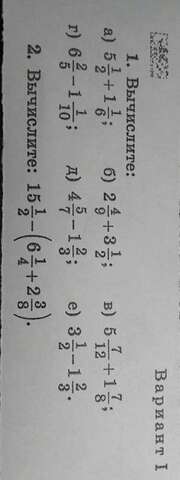 Вариант I
1. Вычислите:
а) 5 1/2 + 1 1/6; б) 2 4/9 + 3 1/2; в) 5 7/12 + 1 7/8;
г) 6 2/5 − 1 1/10; д) 4 5/7 − 1 2/3; е) 3 1/2 − 1 2/3.
2. Вычислите: 15 1/2 − (6 1/4 + 2 3/8).